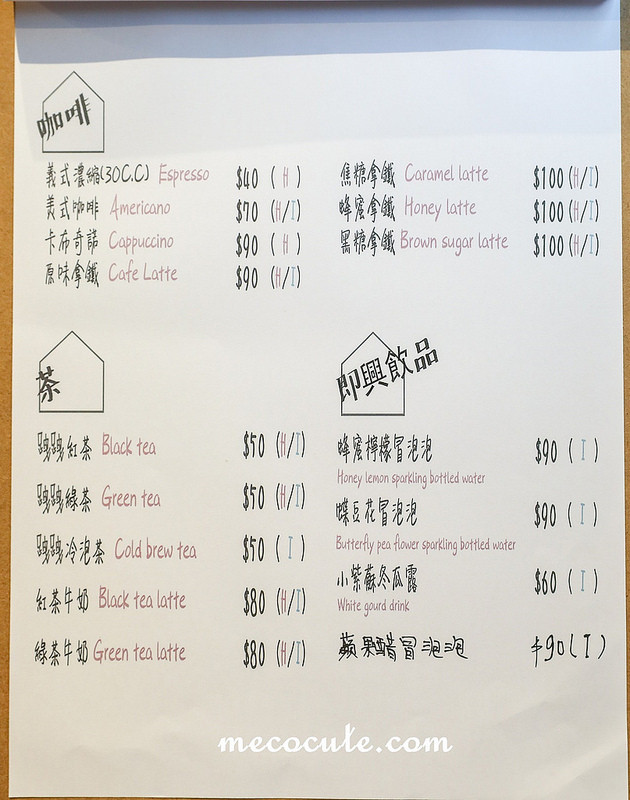 咖啡
義式濃縮(30C.C) Espresso $40 ( H )
美式咖啡 Americano $70 (H/I)
卡布奇諾 Cappuccino $90 ( H )
原味拿鐵 Cafe Latte $90 (H/I)
焦糖拿鐵 Caramel latte $100 (H/I)
蜂蜜拿鐵 Honey latte $100 (H/I)
黑糖拿鐵 Brown sugar latte $100 (H/I)
茶
踘踘紅茶 Black tea $50 (H/I)
踘踘綠茶 Green tea $50 (H/I)
踘踘冷泡茶 Cold brew tea $50 ( I )
紅茶牛奶 Black tea latte $80 (H/I)
綠茶牛奶 Green tea latte $80 (H/I)
即興飲品
蜂蜜檸檬冒泡泡 $90 ( I )
Honey lemon sparkling bottled water
蝶豆花冒泡泡 $90 ( I )
Butterfly pea flower sparkling bottled water
小紫蘇冬瓜露 $60 ( I )
White gourd drink
蘋果醋冒泡泡 $90 ( I )
mecocute.com